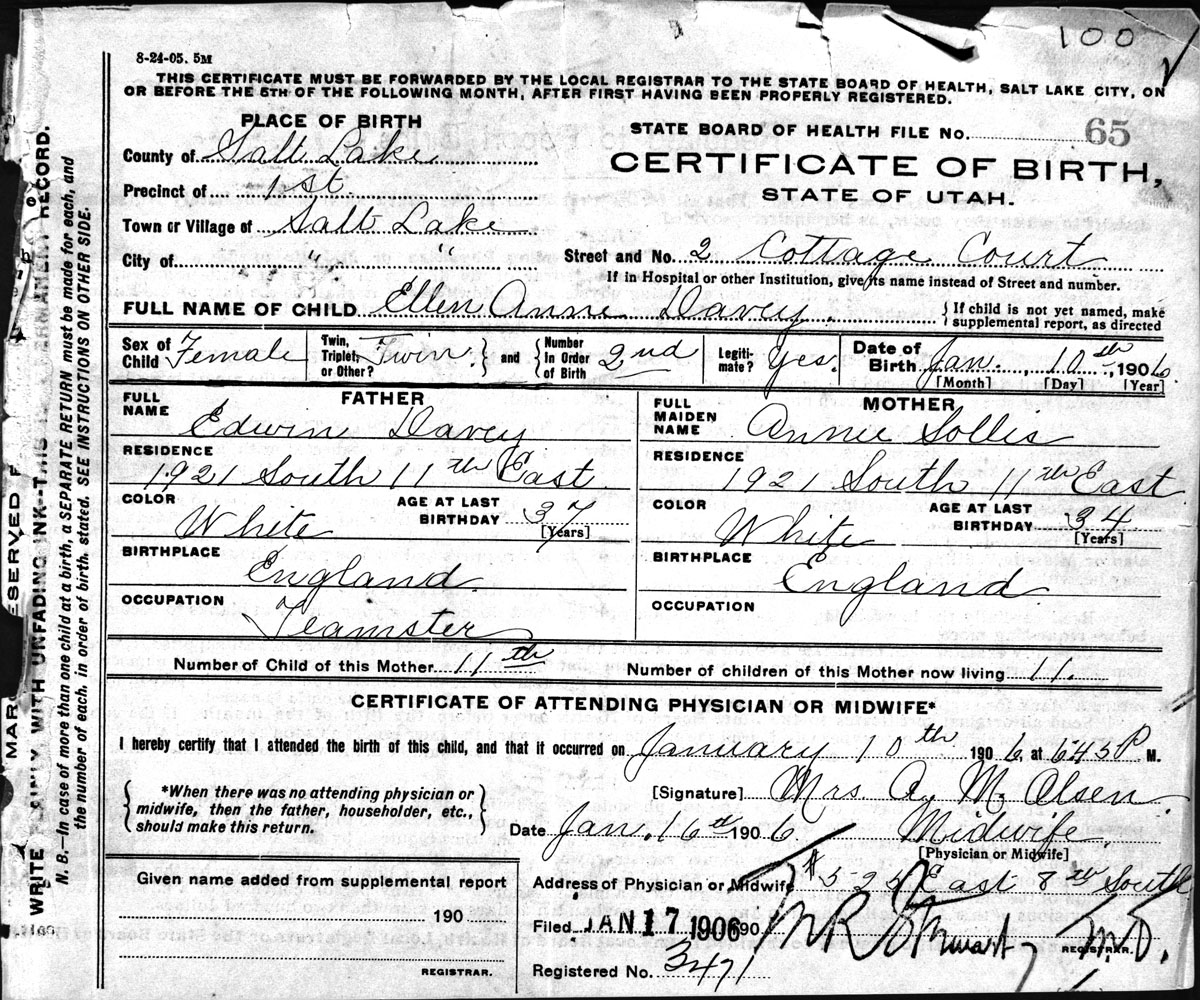 100
8-24-05. 5M
THIS CERTIFICATE MUST BE FORWARDED BY THE LOCAL REGISTRAR TO THE STATE BOARD OF HEALTH, SALT LAKE CITY, ON
OR BEFORE THE 5TH OF THE FOLLOWING MONTH, AFTER FIRST HAVING BEEN PROPERLY REGISTERED.
PLACE OF BIRTH
STATE BOARD OF HEALTH FILE No. 65
County of Salt Lake
CERTIFICATE OF BIRTH,
Precinct of 1st
STATE OF UTAH.
Town or Village of Salt Lake
City of " "
Street and No. 2 Cottage Court
If in Hospital or other Institution, give its name instead of Street and number.
FULL NAME OF CHILD Ellen Anne Davey.
{ If child is not yet named, make
supplemental report, as directed
Sex of Child Female
Twin, Triplet, or Other? Twin
and
Number in Order of Birth 2nd
Legitimate? Yes.
Date of Birth Jan. 10th, 1906
[Month] [Day] [Year]
FATHER
FULL NAME Edwin Davey
RESIDENCE
1921 South 11th East
COLOR White
AGE AT LAST BIRTHDAY 37
[Years]
BIRTHPLACE
England
OCCUPATION
Teamster
MOTHER
FULL MAIDEN NAME Annie Sollis
RESIDENCE
1921 South 11th East
COLOR White
AGE AT LAST BIRTHDAY 34
[Years]
BIRTHPLACE
England
OCCUPATION
Number of Child of this Mother 11th
Number of children of this Mother now living 11.
CERTIFICATE OF ATTENDING PHYSICIAN OR MIDWIFE*
I hereby certify that I attended the birth of this child, and that it occurred on January 10th 1906, at 6.45 P M.
{ *When there was no attending physician or
midwife, then the father, householder, etc.,
should make this return. }
[Signature] Mrs. M Olsen
Date Jan. 16th 1906. Midwife.
[Physician or Midwife]
Address of Physician or Midwife 525 East 8th South
Given name added from supplemental report
190
REGISTRAR.
Filed JAN 17 1906 190
M.D.
REGISTRAR.
Registered No. 3471
MARGIN RESERVED F
WRITE PLAINLY WITH UNFADING INK--THIS PERMANENT RECORD.
N. B.—In case of more than one child at a birth, a SEPARATE RETURN must be made for each, and
the number of each, in order of birth, stated. SEE INSTRUCTIONS ON OTHER SIDE.